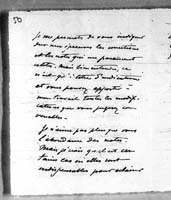 50
je me permets de vous indiquer
sur mes épreuves les corrections
et les notes qui me paraissent
utiles, mais bien entendu, ceci
n'est qu'à titre d'indication
et vous pouvez apporter à
travail toutes les modifi-
cations que vous jugerez con-
venables.
Je n'aime pas plus que vous
l'abondance des notes.
Mais je crois qu'il est cer-
tains cas où elles sont
indispensables pour éclairer